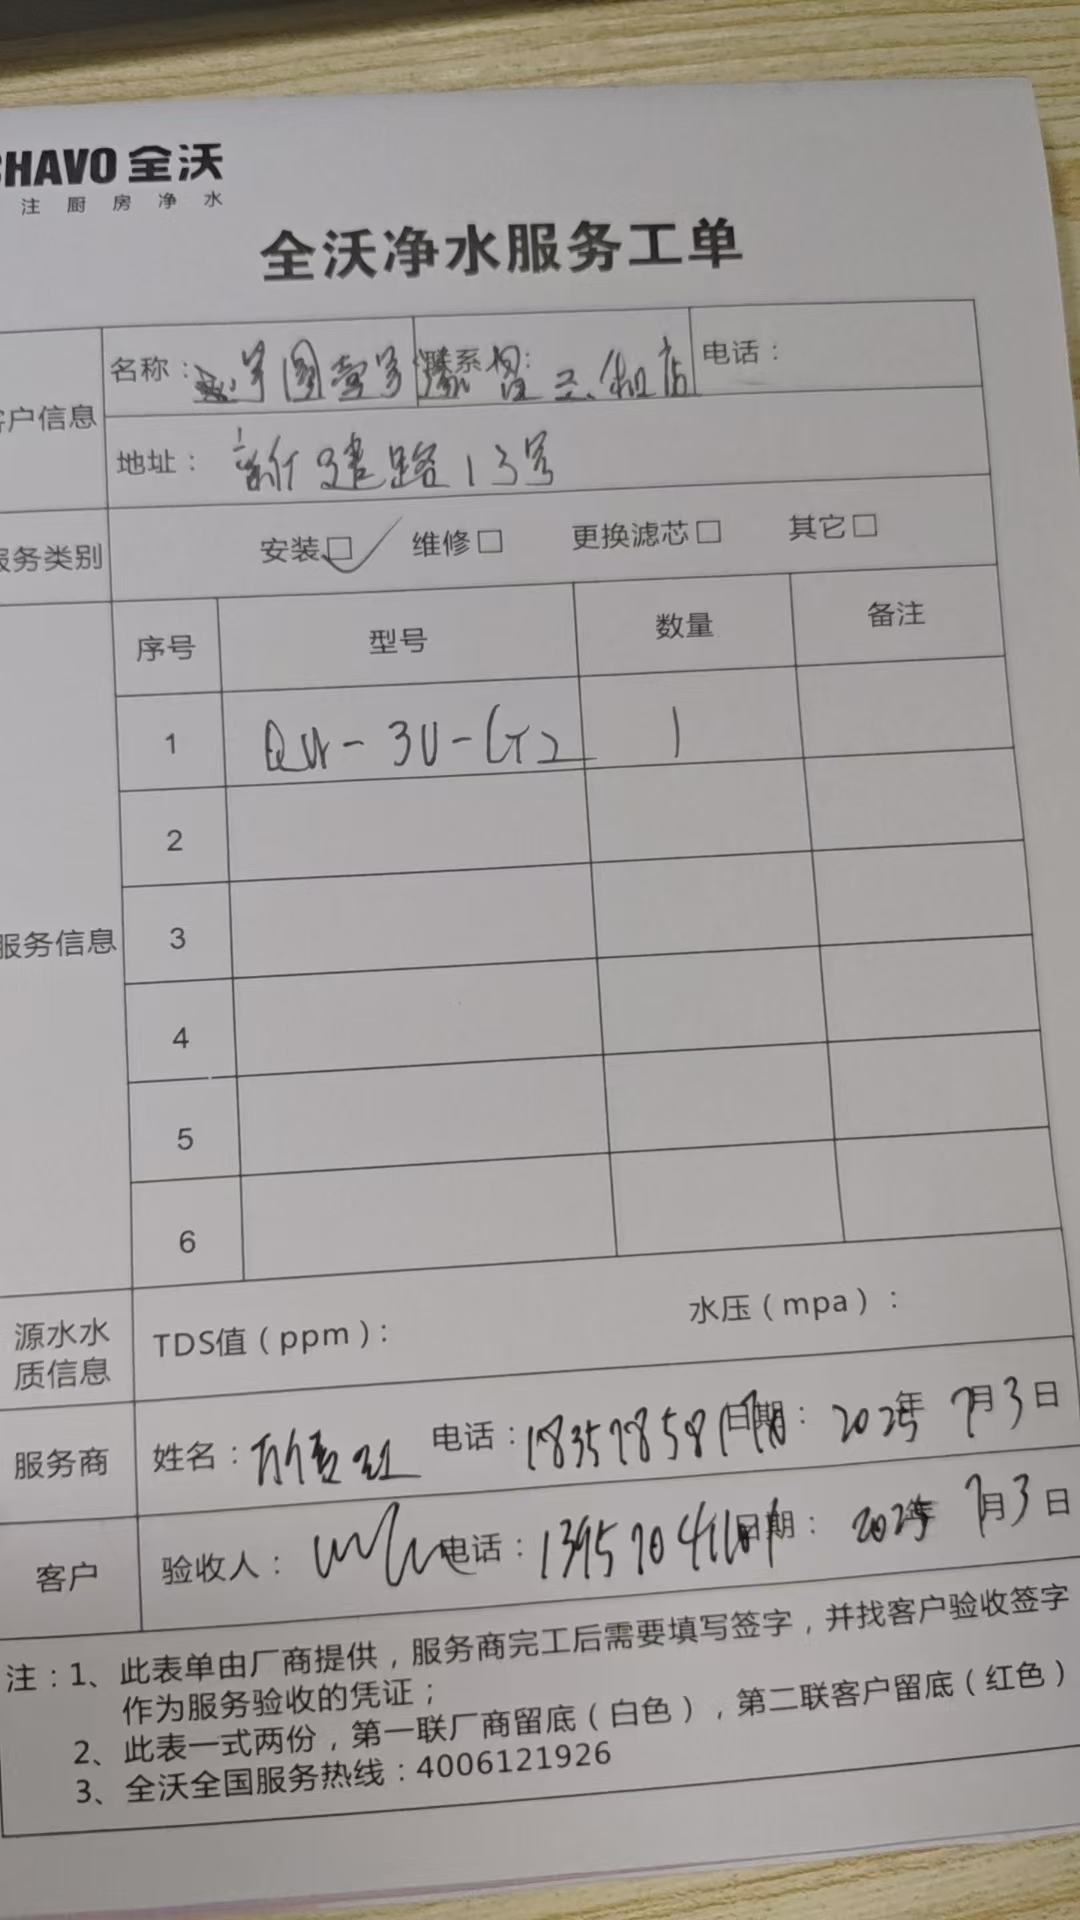 CHAVO 全沃
注厨房净水
全沃净水服务工单
客户信息
名称： 联系 店 电话：
地址：新建路13号
服务类别 安装☑ 维修□ 更换滤芯□ 其它□
服务信息
序号 型号 数量 备注
1 QW-3U-GT2 1
2
3
4
5
6
源水水质信息 TDS值（ppm）： 水压（mpa）：
服务商 姓名： 电话： 日期：2025年7月3日
客户 验收人： 电话： 日期：2025年7月3日
注：1、此表单由厂商提供，服务商完工后需要填写签字，并找客户验收签字
作为服务验收的凭证；
2、此表一式两份，第一联厂商留底（白色），第二联客户留底（红色）
3、全沃全国服务热线：4006121926